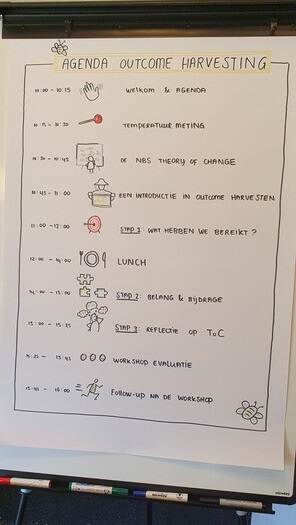 AGENDA OUTCOME HARVESTING
10:00 - 10:15 WELKOM & AGENDA
10:15 - 10:30 TEMPERATUUR METING
10:30 - 10:45 DE NBS THEORY OF CHANGE
10:45 - 11:00 EEN INTRODUCTIE IN OUTCOME HARVESTEN
11:00 - 12:00 STAP 1: WAT HEBBEN WE BEREIKT?
12:00 - 14:00 LUNCH
14:00 - 15:00 STAP 2: BELANG & BIJDRAGE
15:00 - 15:25 STAP 3: REFLECTIE OP ToC
15:25 - 15:45 WORKSHOP EVALUATIE
15:45 - 16:00 FOLLOW-UP NA DE WORKSHOP